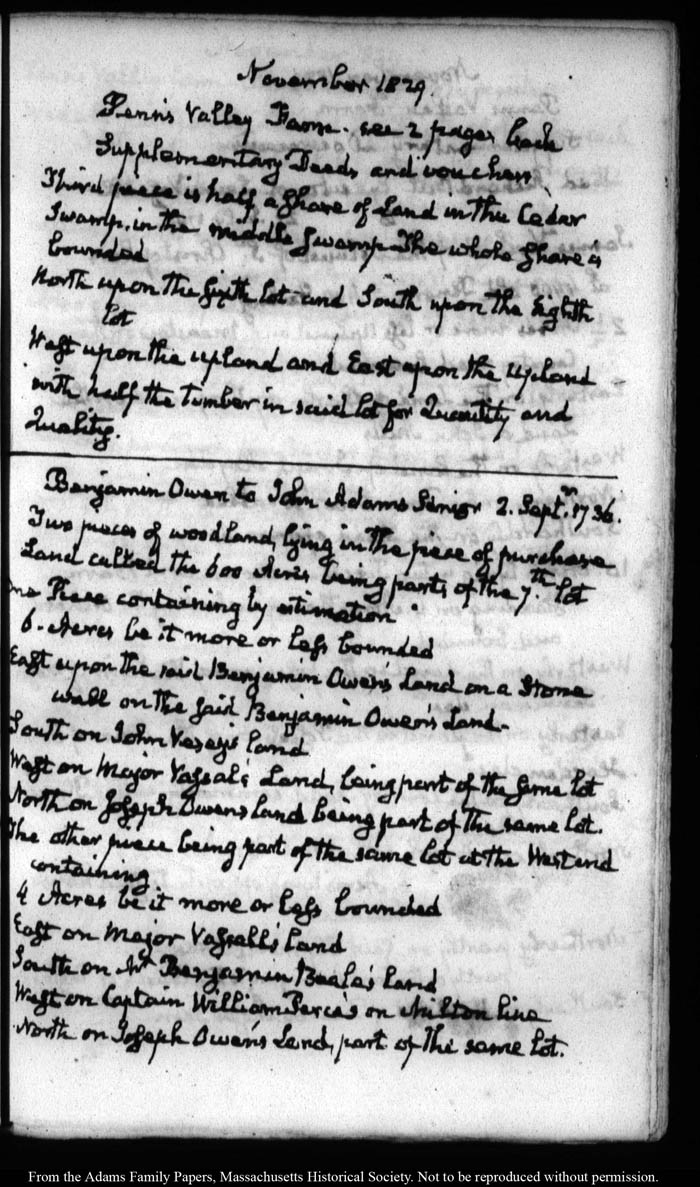 November 1829.
Penn's Valley Farm. see 2 pages back
Supplementary Deeds and vouchers
Third peece is half a Share of Land in the Cedar
Swamp, in the middle Swamp The whole Share is
bounded
North upon the Sixth lot and South upon the Eighth
lot
West upon the upland and East upon the Upland
with half the Timber in said lot for Quantity and
Quality.
Benjamin Owen to John Adams Senior 2. Sept.r 1736.
Two pieces of woodland, lying in the piece of purchase
Land called the 600 Acres being parts of the 7.th lot
One Piece containing by estimation
6. Acres be it more or less bounded
East upon the said Benjamin Owen's Land on a Stone
wall on the said Benjamin Owen's Land.
South on John Vesey's land
West on Major Vassal's Land, being part of the same lot
North on Joseph Owens land being part of the same lot.
The other piece being part of the same lot at the West end
containing
4 Acres be it more or less bounded
East on Major Vassall's land
South on Mr Benjamin Beale's land
West on Captain William Peirce's on Milton line
North on Joseph Owen's Land, part of the same lot.
From the Adams Family Papers, Massachusetts Historical Society. Not to be reproduced without permission.